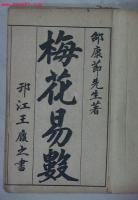 邵康節先生著
梅花易數
邗江王廬之書